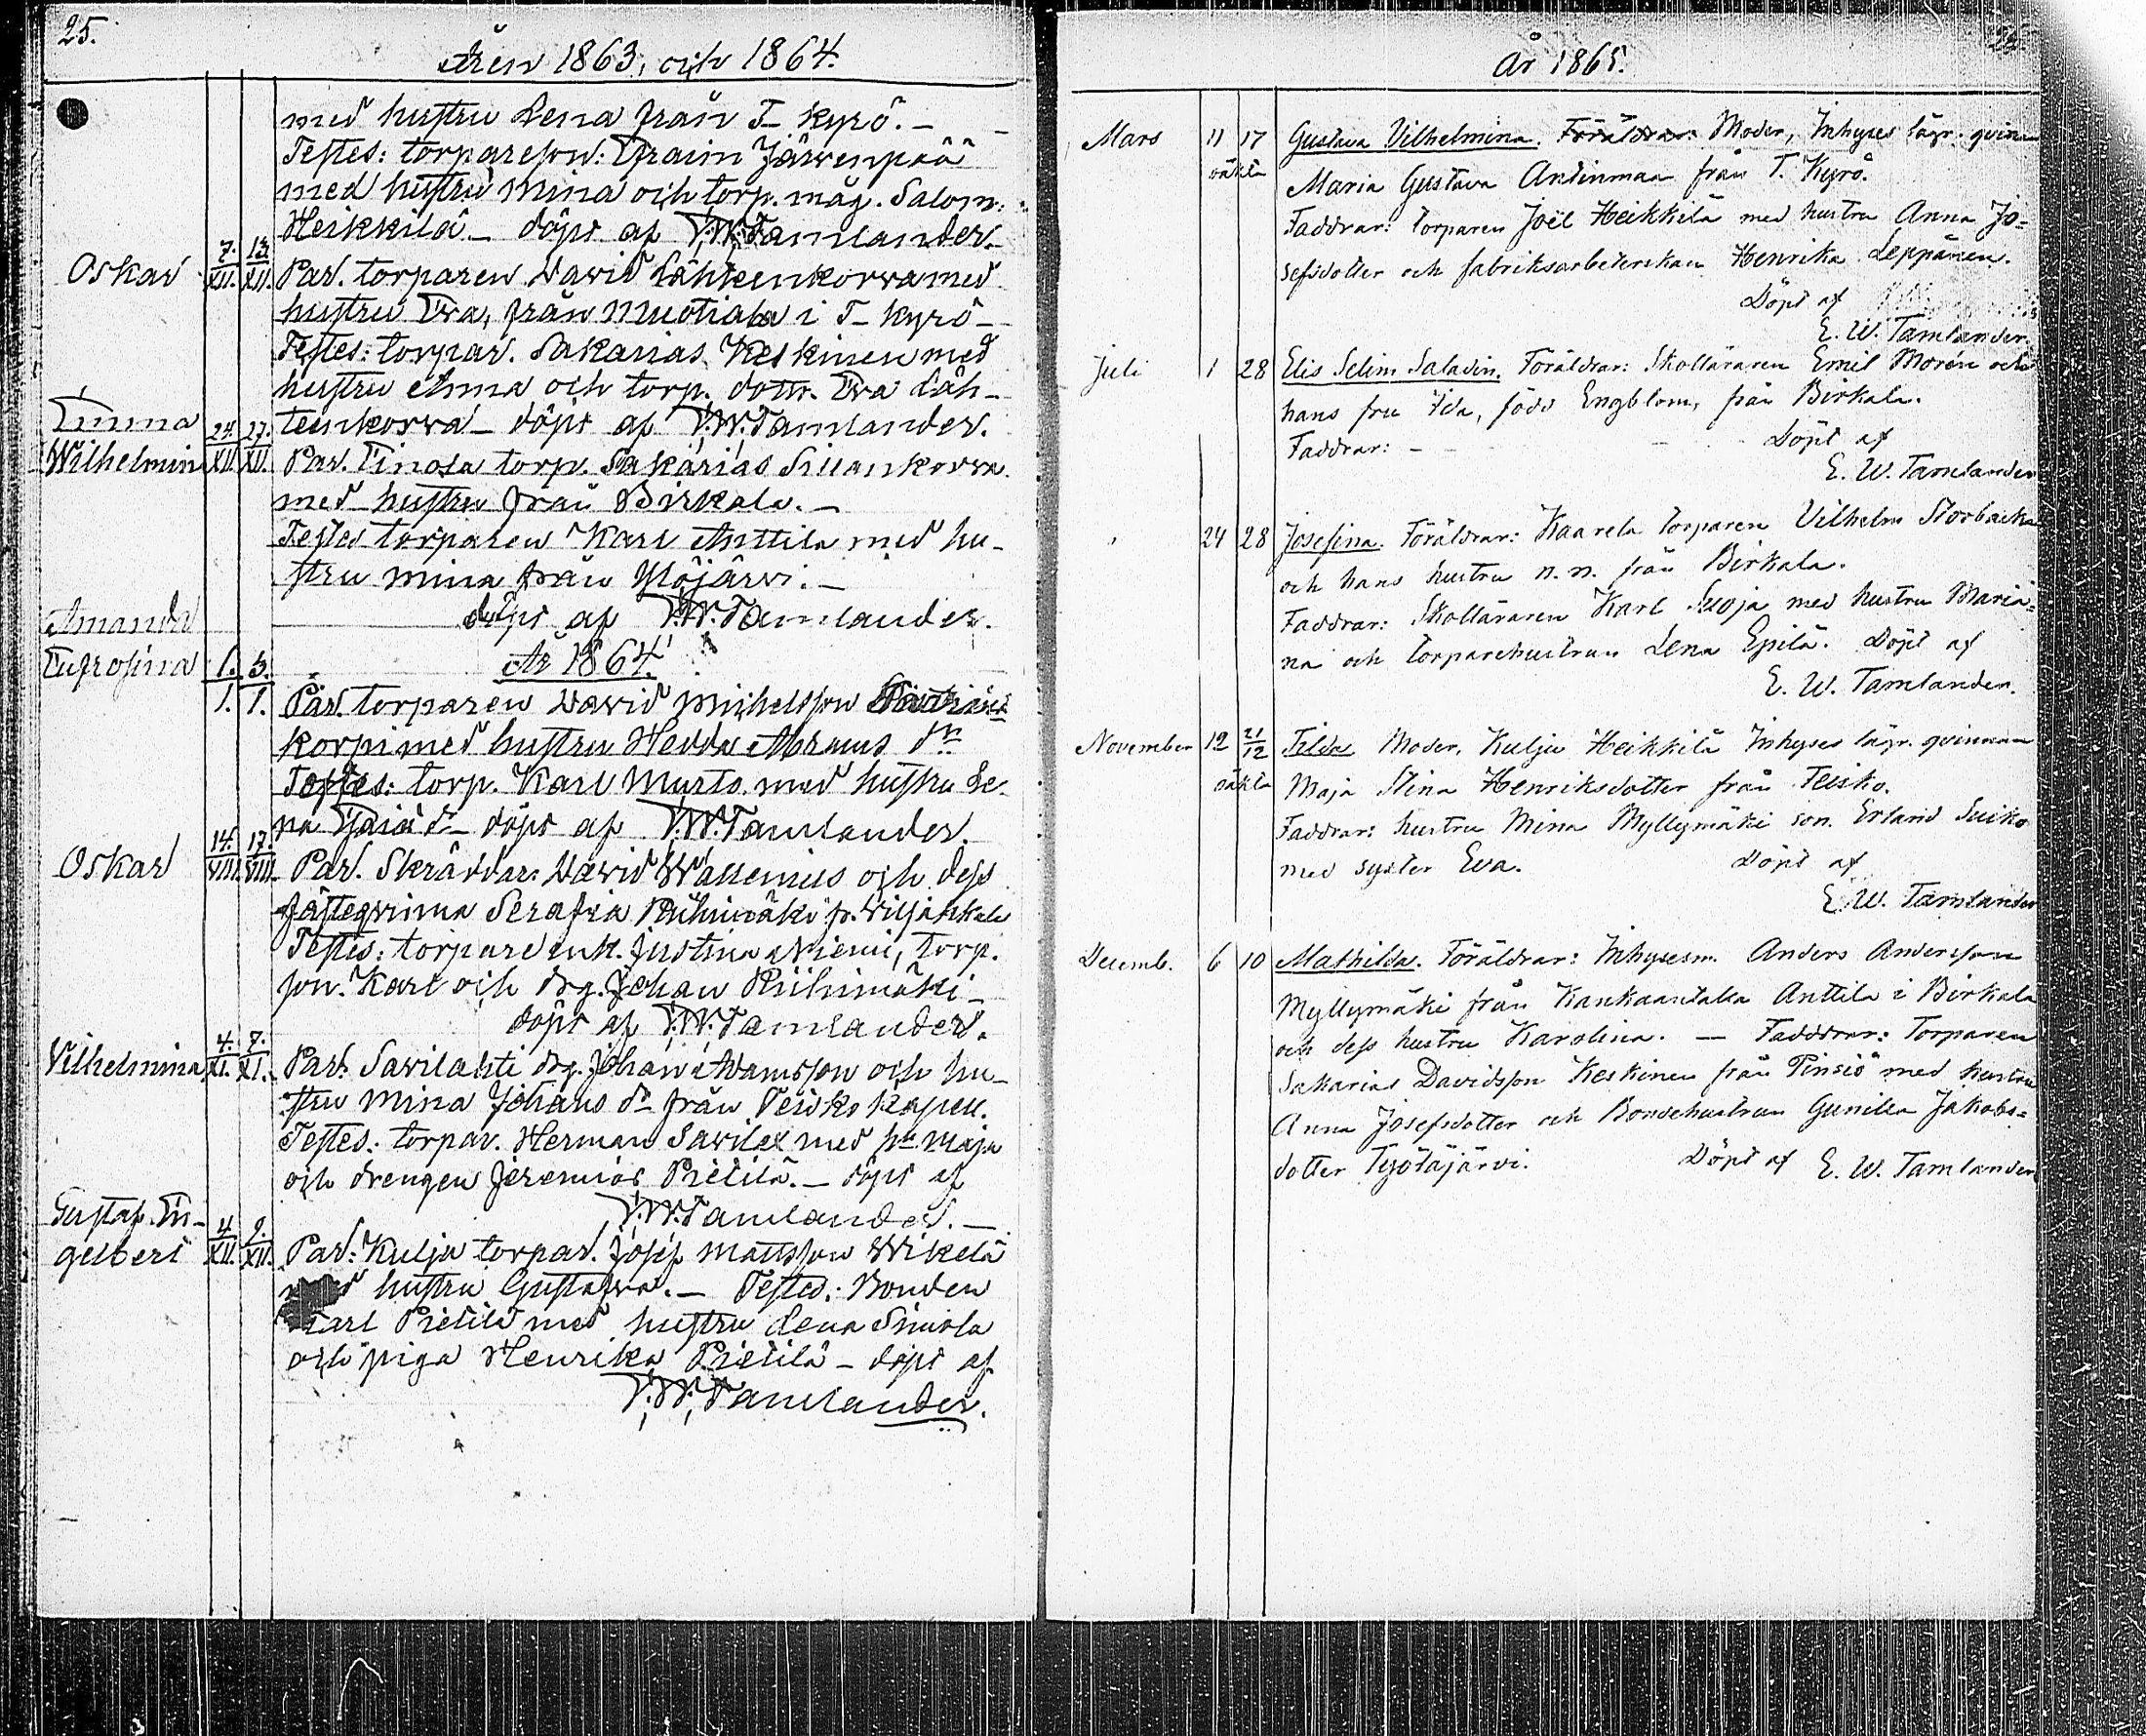 25.
Åren 1863, och 1864.
med hustru Lena från T- Kyrö. -
Testes: torpareson: Efraim Järwenpää
med hustru Mina och torp. måg. Salom:
Heikkilä - döpt af E. W. Tamlander.
Oskar 7. XII. 13. XII. Par. torparen David Lähteenkorva med
hustru Eva, från Muotiala i T- Kyrö -
Testes: torpar. Sakarias Keskinen med
hustru Anna och torp. dottr. Eva Läh-
Emma 24. 27. teenkorva - döpt af E. W. Tamlander.
Wilhelmin XII. XII. Par. Pinosa torp. Sakarias Sillankorva
med hustru från Birkala. -
Testes torparen Karl Anttila med hu-
stru Mina från Ylöjärvi. -
döpt af E. W. Tamlander.
Amanda
Eufrosina 1. 3. År 1864.
1. 1. Par. torparen David Michelsson
Korpi med hustru Hedda Abrams dr
Testes: torp. Karl Murto med hustru Le-
na dr - döpt af E. W. Tamlander.
Oskar 14. VIII. 17. VIII. Par. Skräddar. David Wallenius och dess
fästeqvinna Serafia Riihimäki fr. Viljakkala
Testes: torpare enk. Justina Niemi, torp.
son. Karl och drg. Johan Riihimäki -
döpt af E. W. Tamlander.
Vilhelmina 4. XI. 7. XI. Par. Savilahti drg. Johan Adamsson och hu-
stru Mina Johans dr från Teisko kapell.
Testes: torpar. Herman Savilax med hu Maja
och drengen Jeremias Pietilä. - döpt af
E. W. Tamlander. -
Gustaf En-
gelbert 4 XII. 9. XII. Par: Kulju torpar. Josef Mattsson Wikelä
med hustru Gustafva. - Testes: Bonden
Karl Pietilä med hustru Lena Simola
och piga Henrika Pietilä - döpt af
E. W. Tamlander.
År 1865.
Mars 11 17 Gustava Vilhelmina. Föräldrar: Moder, Inhyses lägr. qvinn
oäkta Maria Gustava Antinmaa från T. Kyrö.
Faddrar: torparen Joël Heikkilä med hustru Anna Jo-
sefsdotter och fabriksarbeterskan Henrika Leppänen.
Döpt af
E. W. Tamlander.
Juli 1 28 Elis Selim Saladin. Föräldrar: Skolläraren Emil Morén och
hans fru Ida, född Engblom, från Birkala.
Faddrar: - - Döpt af
E. W. Tamlander
24 28 Josefina. Föräldrar: Kaarela torparen Vilhelm Storbacka
och hans hustru n. n. från Birkala.
Faddrar: Skolläraren Karl Suoja med hustru Maria-
na och torparehustrun Lena Epilä. Döpt af
E. W. Tamlander.
November 12 21/12 Tilda Moder, Kulju Heikkilä Inhyses lägr. qvinnan
oäkta Maja Stina Henriksdotter från Teisko.
Faddrar: hustru Mina Myllymäki son. Erland Suiko
med syster Eva. Döpt af
E. W. Tamlander
Decemb. 6 10 Mathilda. Föräldrar: Inhysesm. Anders Andersson
Myllymäki från Kankaantaka Anttila i Birkala
och dess hustru Karolina. — Fadddrar: Torparen
Sakarias Davidsson Keskinen från Pinsiö med hustru
Anna Josefsdotter och Bondehustrun Gunilla Jakobs-
dotter Työtäjärvi. Döpt af E. W. Tamlander